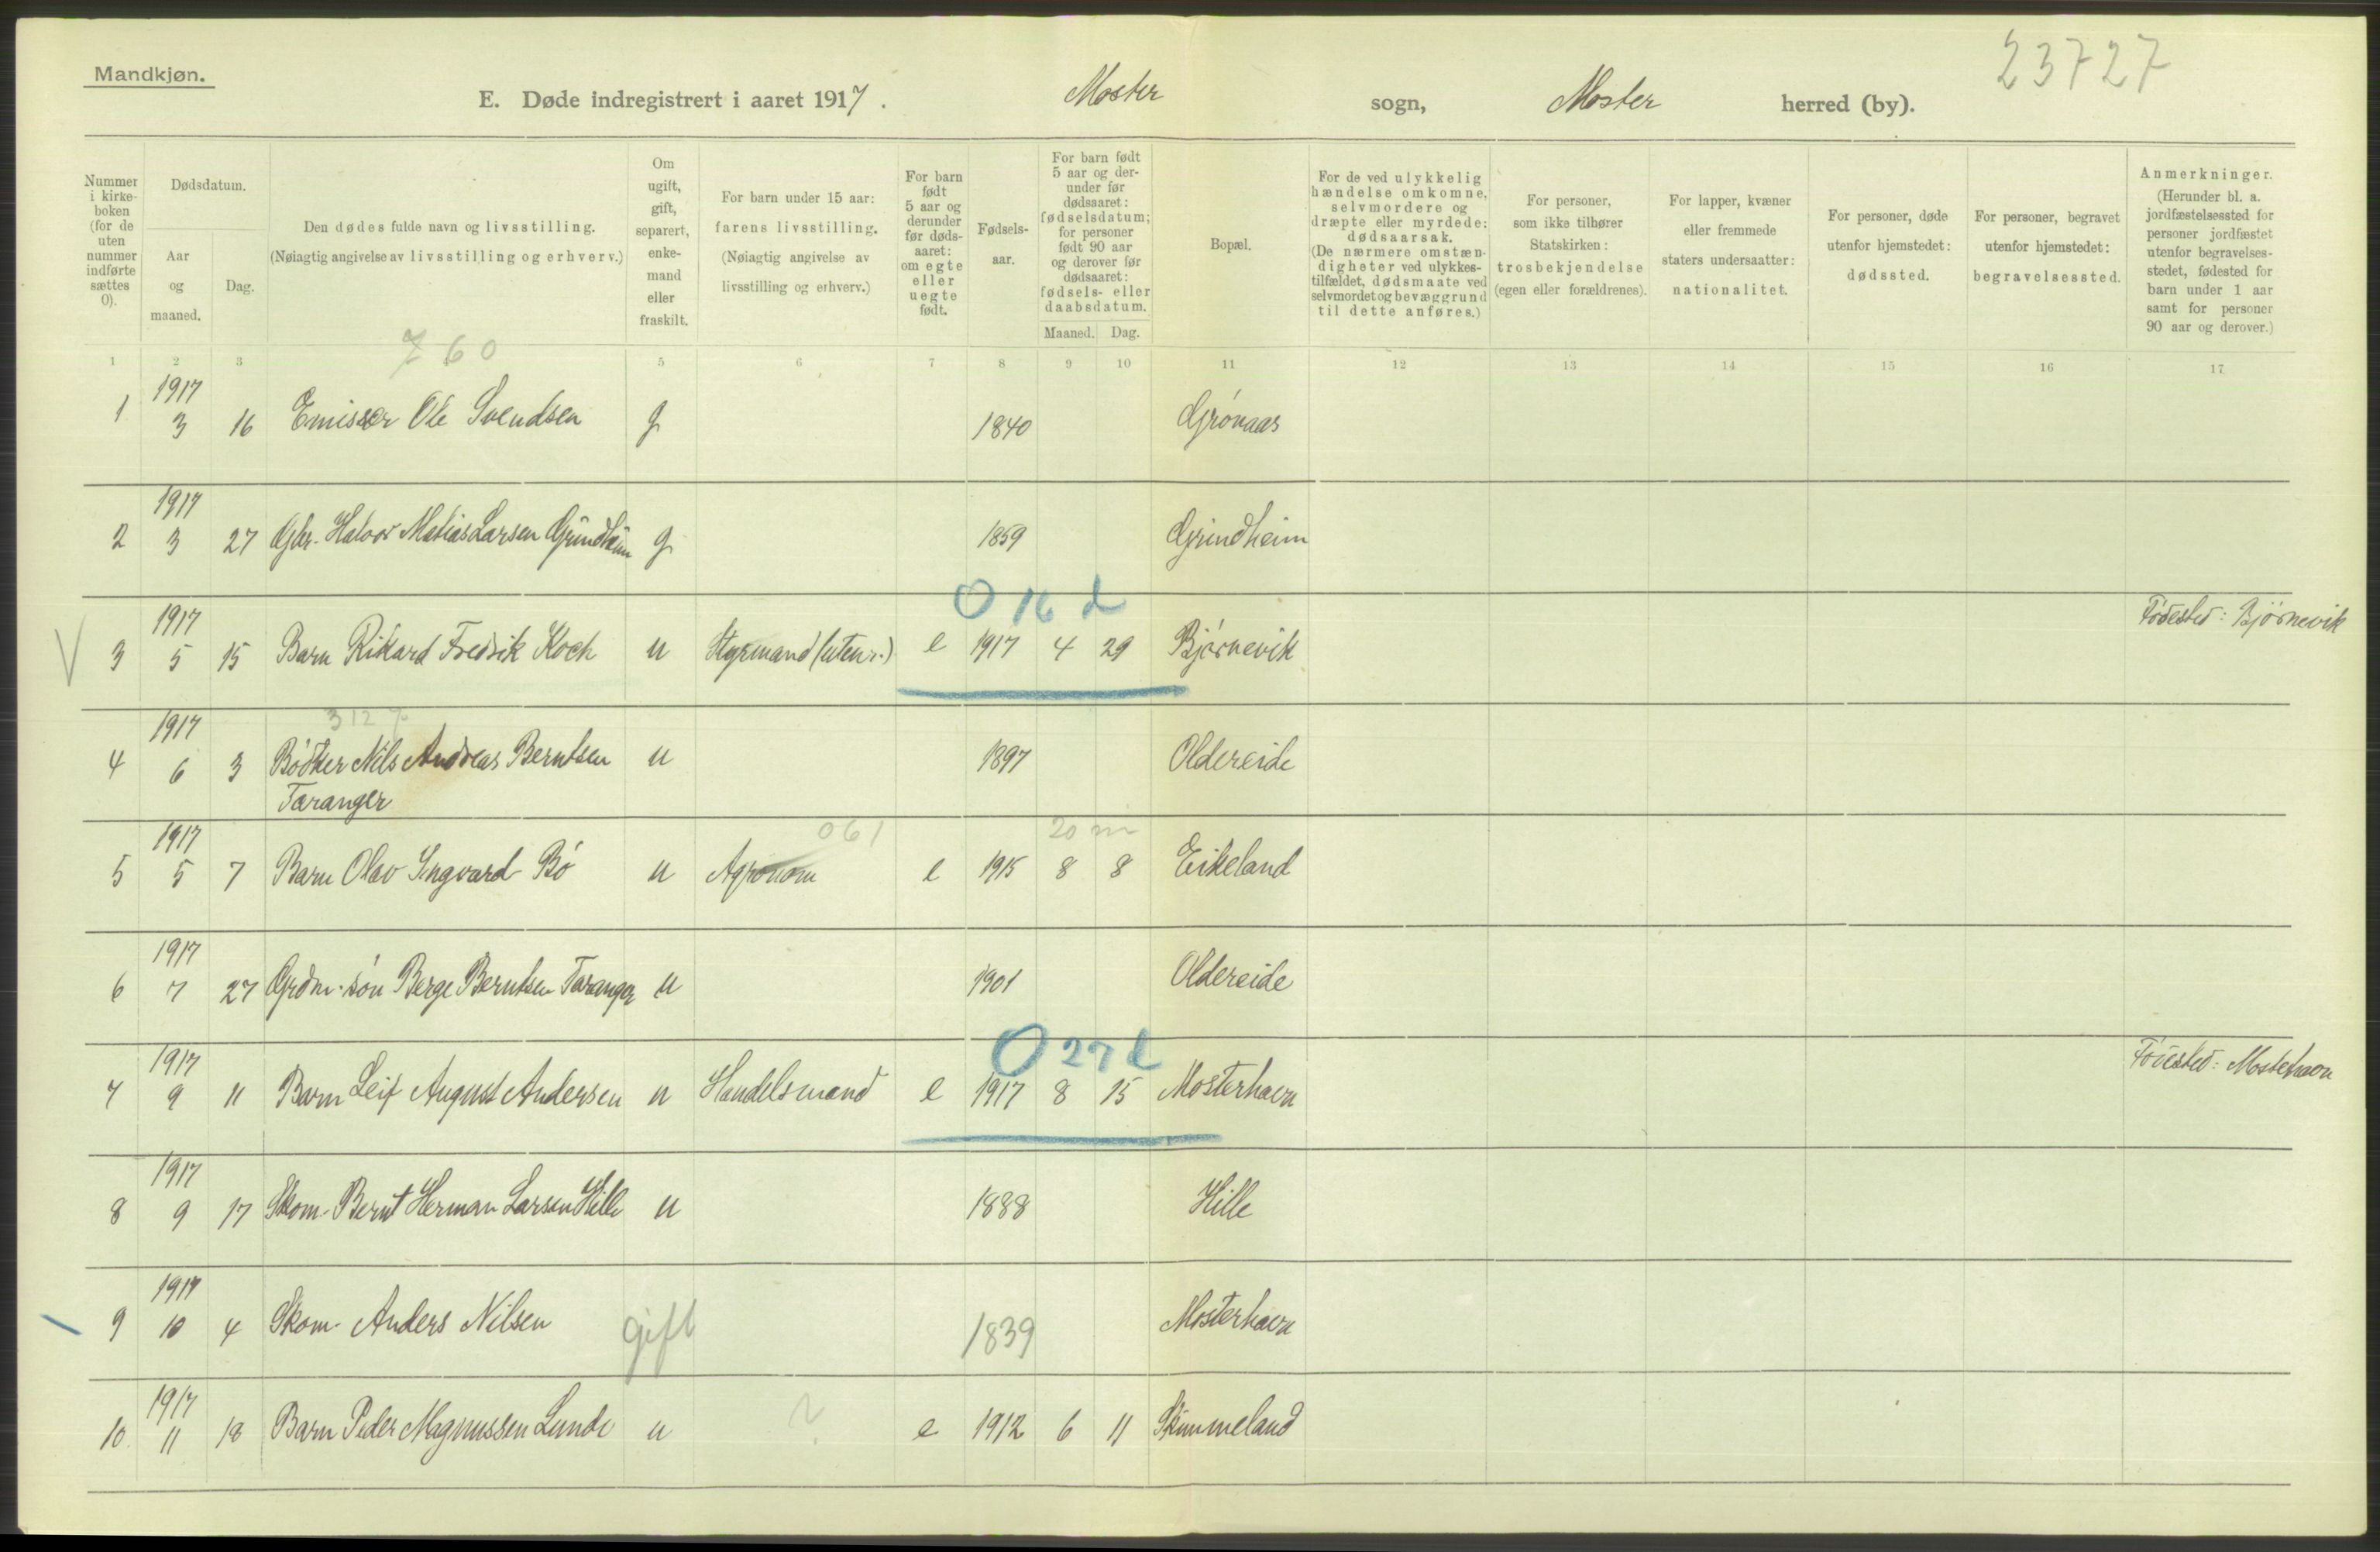 Mandkjøn.
23727
E. Døde indregistrert i aaret 1917. Moster sogn, Moster herred (by).
Nummer i kirke-boken (for de uten nummer indførte sættes 0).
Dødsdatum.
Aar og maaned.
Dag.
Den dødes fulde navn og livsstilling.
(Nøiagtig angivelse av livsstilling og erhverv.)
Om ugift, gift, separert, enke-mand eller fraskilt.
For barn under 15 aar: farens livsstilling.
(Nøiagtig angivelse av livsstilling og erhverv.)
For barn født 5 aar og derunder før døds-aaret: om egte eller uegte født.
Fødsels-aar.
For barn født 5 aar og der-under før dødsaaret: fødselsdatum; for personer født 90 aar og derover før dødsaaret: fødsels- eller daabsdatum.
Maaned. Dag.
Bopæl.
For de ved ulykkelig hændelse omkomne, selvmordere og dræpte eller myrdede: dødsaarsak.
(De nærmere omstæn-digheter ved ulykkes-tilfældet, dødsmaate ved selvmordet og bevæggrund til dette anføres.)
For personer, som ikke tilhører Statskirken: trosbekjendelse (egen eller forældrenes).
For lapper, kvæner eller fremmede staters undersaatter: nationalitet.
For personer, døde utenfor hjemstedet: dødssted.
For personer, begravet utenfor hjemstedet: begravelsessted.
Anmerkninger.
(Herunder bl. a. jordfæstelsessted for personer jordfæstet utenfor begravelses-stedet, fødested for barn under 1 aar samt for personer 90 aar og derover.)
760
1 2 3 5 6 7 8 9 10 11 12 13 14 15 16 17
1917
1 3 16 Emissær Ole Svendsen g 1840 Grónaas
1917
2 3 27 Gbr. Halvor Matias Larsen Grindheim g 1859 Grindheim
0 16 d
1917 Fødested: Bjórnevik
V 3 5 15 Barn Rikard Fredrik Koch u Styrmand (utenr.) e 1917 4 29 Bjórnevik
1917 312
4 6 3 Bódker Nils Andreas Berntsen u 1897 Oldereide
Taranger
1917 061 20 m
5 5 7 Barn Olav Ingvard Bó u Agronom e 1915 8 8 Eikeland
1917
6 7 27 Grdm. són Berge Berntsen Taranger u 1901 Oldereide
0 27 d
1917 Fødested: Mosterhavn
7 9 11 Barn Leif August Andersen u Handelsmand e 1917 8 15 Mosterhavn
1917
8 9 17 Skom. Bernt Herman Larsen Hille u 1888 Hille
1917
9 10 4 Skom. Anders Nilsen gift 1839 Mosterhavn
1917
10. 11 18 Barn Peder Magnussen Lunde u ? e 1912 6 11 Skimmeland